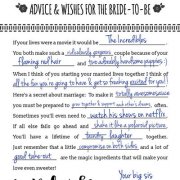 ADVICE & WISHES FOR THE BRIDE-TO-BE
If your lives were a movie it would be The Incredibles
You both make such a ridiculously gorgeous couple because of your
flaming red hair and two adorably handsome puppies :)
When I think of you starting your married lives together I think of
all the fun you're going to have & get so freaking excited for you!
Here's a secret about marriage: To make it totally awesomesauce
you must be prepared to give together & support each other's dreams, often.
Sometimes you'll even need to watch his shows on netflix
If all else fails go ahead and shake it like a polaroid picture.
You'll have a lifetime of laughter
Just remember that a little compromise on both sides, and a lot of
good take out are the magic ingredients that will make your
love even sweeter!
Your big sis